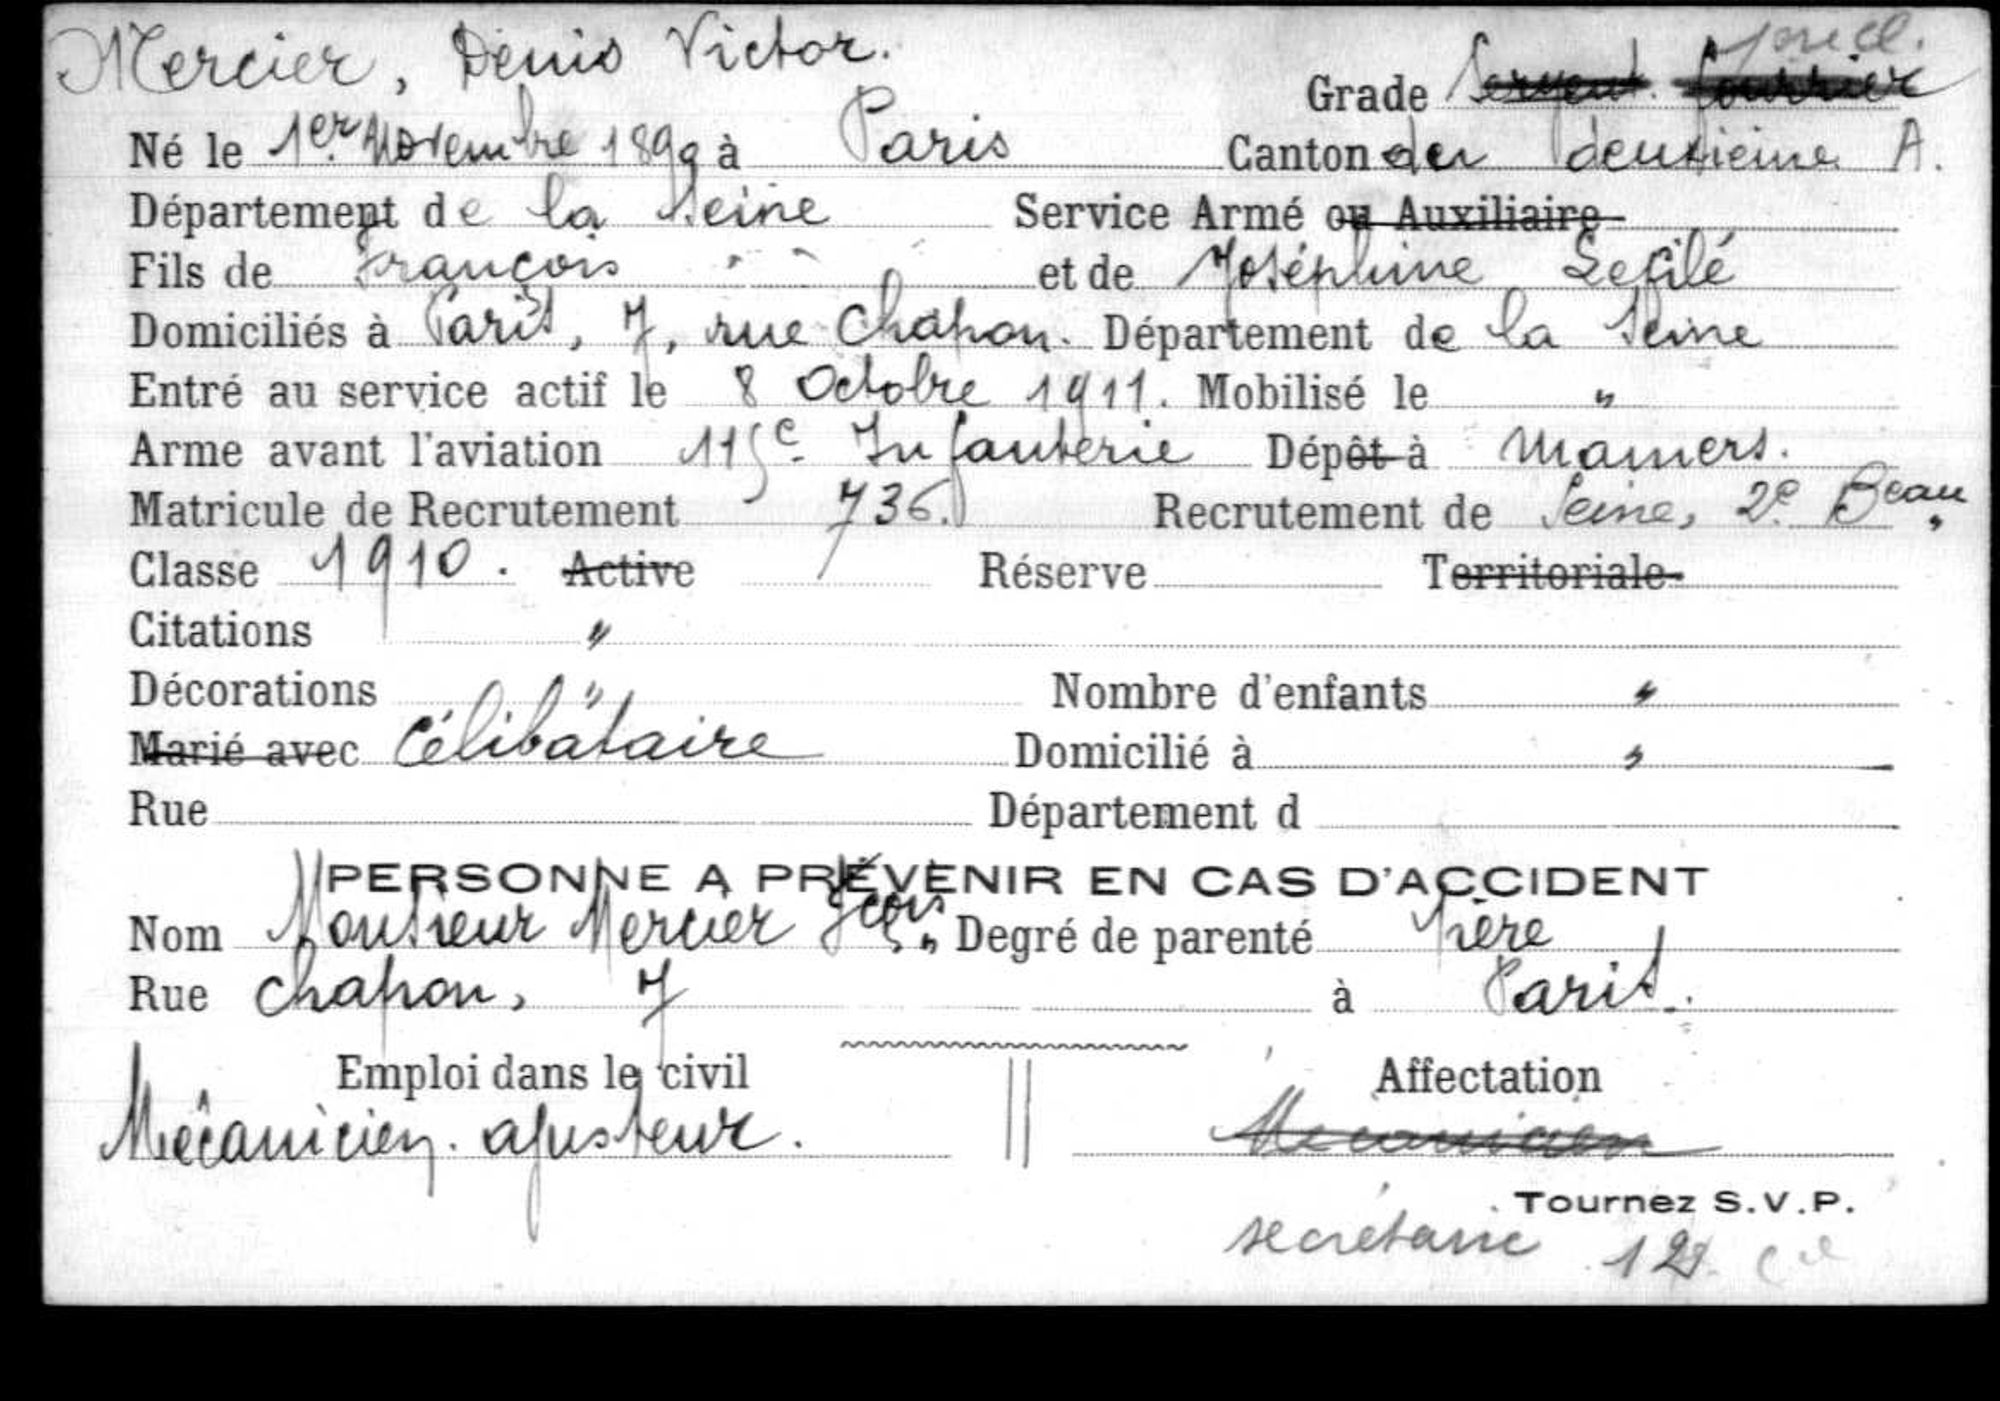 Mercier, Denis Victor.
Grade Sergent fourrier
Né le 1er Novembre 1890 à Paris Canton du deuxième A.
Département de la Seine Service Armé ou Auxiliaire
Fils de François et de Joséphine Lefilé
Domiciliés à Paris, 7, rue Chapon. Département de la Seine
Entré au service actif le 8 Octobre 1911. Mobilisé le "
Arme avant l'aviation 115e Infanterie Dépôt à Mamers.
Matricule de Recrutement 736. Recrutement de Seine, 2e Beau
Classe 1910. Active Réserve Territoriale
Citations "
Décorations " Nombre d'enfants "
Marié avec Célibataire Domicilié à "
Rue Département d
PERSONNE A PRÉVENIR EN CAS D'ACCIDENT
Nom Monsieur Mercier Fçois, Degré de parenté Père
Rue Chapon, 7 à Paris.
Emploi dans le civil Affectation
Mécanicien. ajusteur. Mecanicien
Tournez S.V.P.
secrétaire